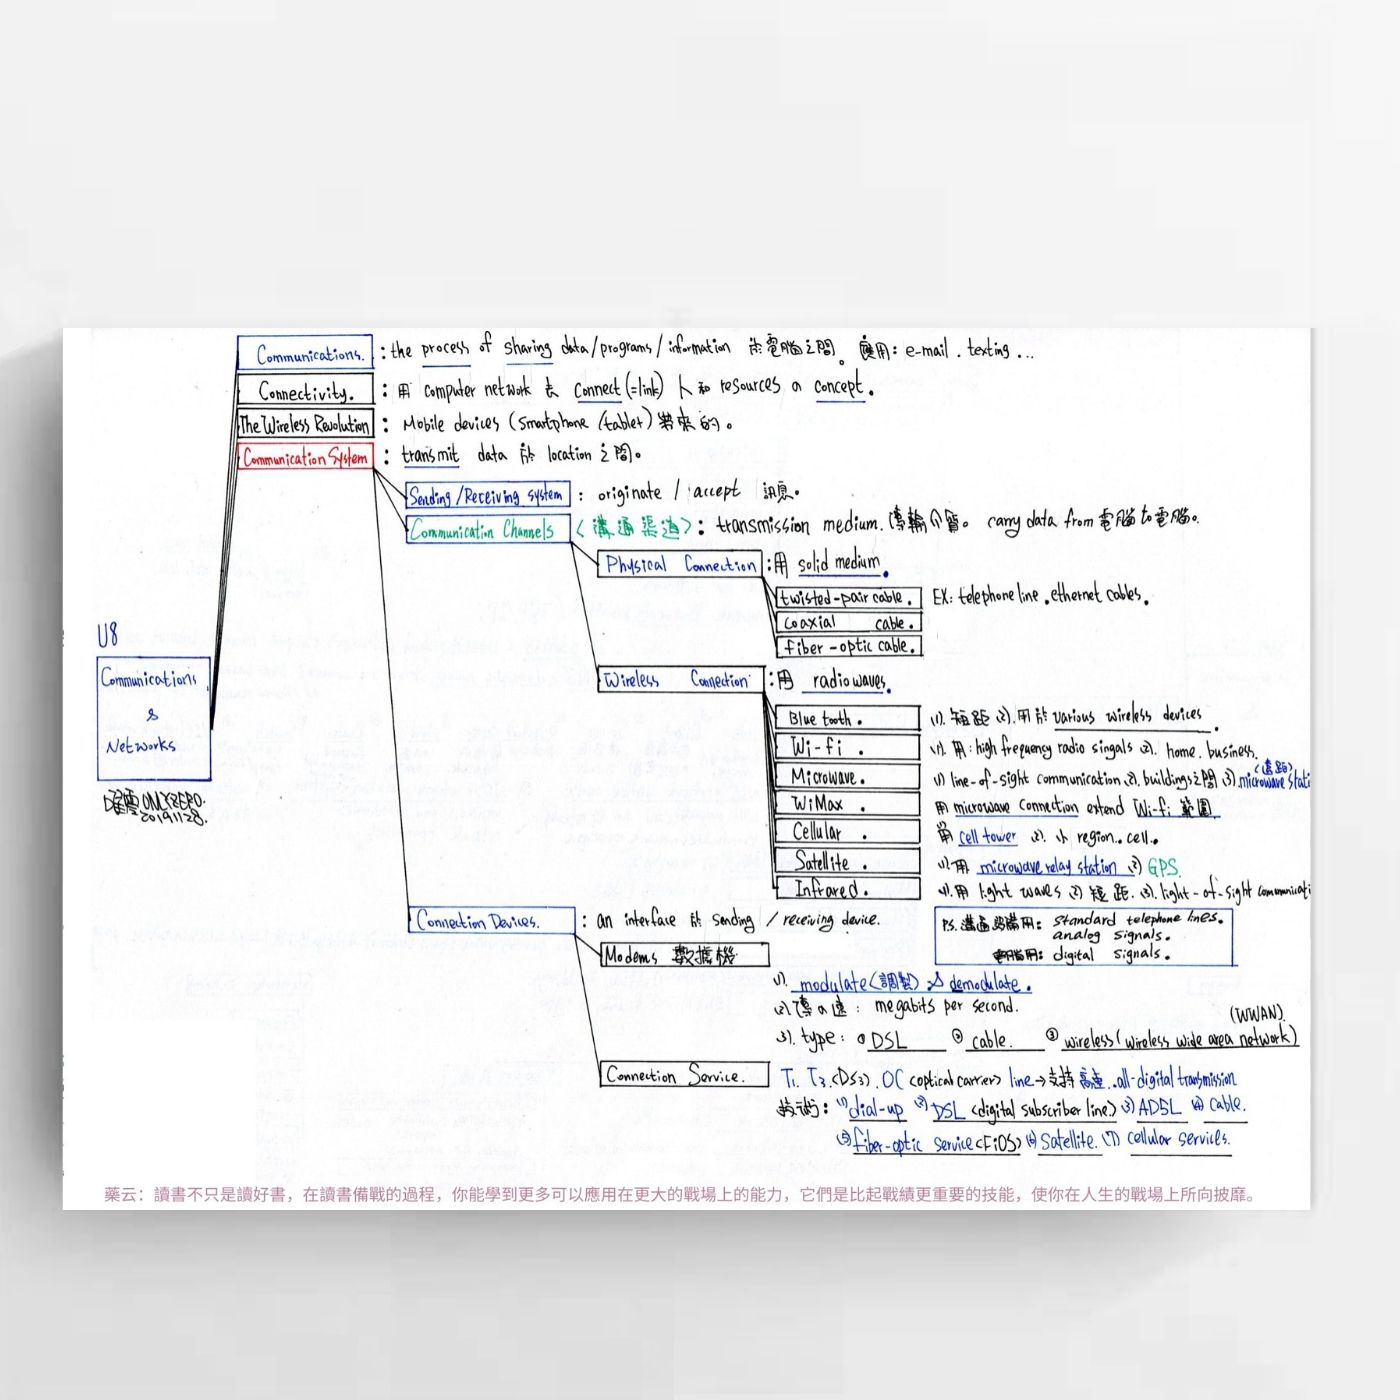 Communications. : the process of sharing data/programs/information 於電腦之間。 應用: e-mail . texting ...
Connectivity. : 用 computer network 去 connect (=link) 人和 resources a concept .
The Wireless Revolution : Mobile devices (smartphone /tablet) 帶來的。
Communication System : transmit data 於 location 之間。
Sending /Receiving system : originate / accept 訊息。
Communication Channels <溝通渠道> : transmission medium. 傳輸介質。 carry data from 電腦 to 電腦。
Physical Connection : 用 solid medium.
twisted-pair cable . EX: telephone line . ethernet cables.
coaxial cable .
fiber -optic cable .
U8
Communications & Networks
Wireless Connection : 用 radio waves.
Blue tooth . (1). 短距 (2). 用於 various wireless devices .
Wi-fi . (1). 用: high frequency radio singals (2). home. business.
Microwave . (1) line-of-sight communication. (2). buildings之間 (3) microwave stati
(遠距)
WiMax . 用 microwave connection extend Wi-fi 範圍.
ONLYZERO.
20191128.
Cellular . cell tower (2). 小 region. cell.
Satellite . (1). 用 microwave relay station (2) GPS.
Infrared . (1). 用 light waves (2) 短距. (3). light-of-sight communicati
Connection Devices. : an interface 於 sending / receiving device.
P.S. 溝通設備用: standard telephone lines.
analog signals.
電腦用: digital signals.
Modems 數據機
(1). modulate (調製) & demodulate .
(2) 傳の速 : megabits per second.
3). type: ① DSL ② cable. ③ wireless (wireless wide area network)
(WWAN).
Connection Service. T1. T3.<DS3). OC <optical carrier> line → 支持高速..all-digital transmission
技術: (1) dial-up (2) DSL <digital subscriber line> (3) ADSL (4) cable.
(5) fiber-optic service <FiOS> (6) Satellite. (7) cellular services.
藥云：讀書不只是讀好書，在讀書備戰的過程，你能學到更多可以應用在更大的戰場上的能力，它們是比起戰績更重要的技能，使你在人生的戰場上所向披靡。